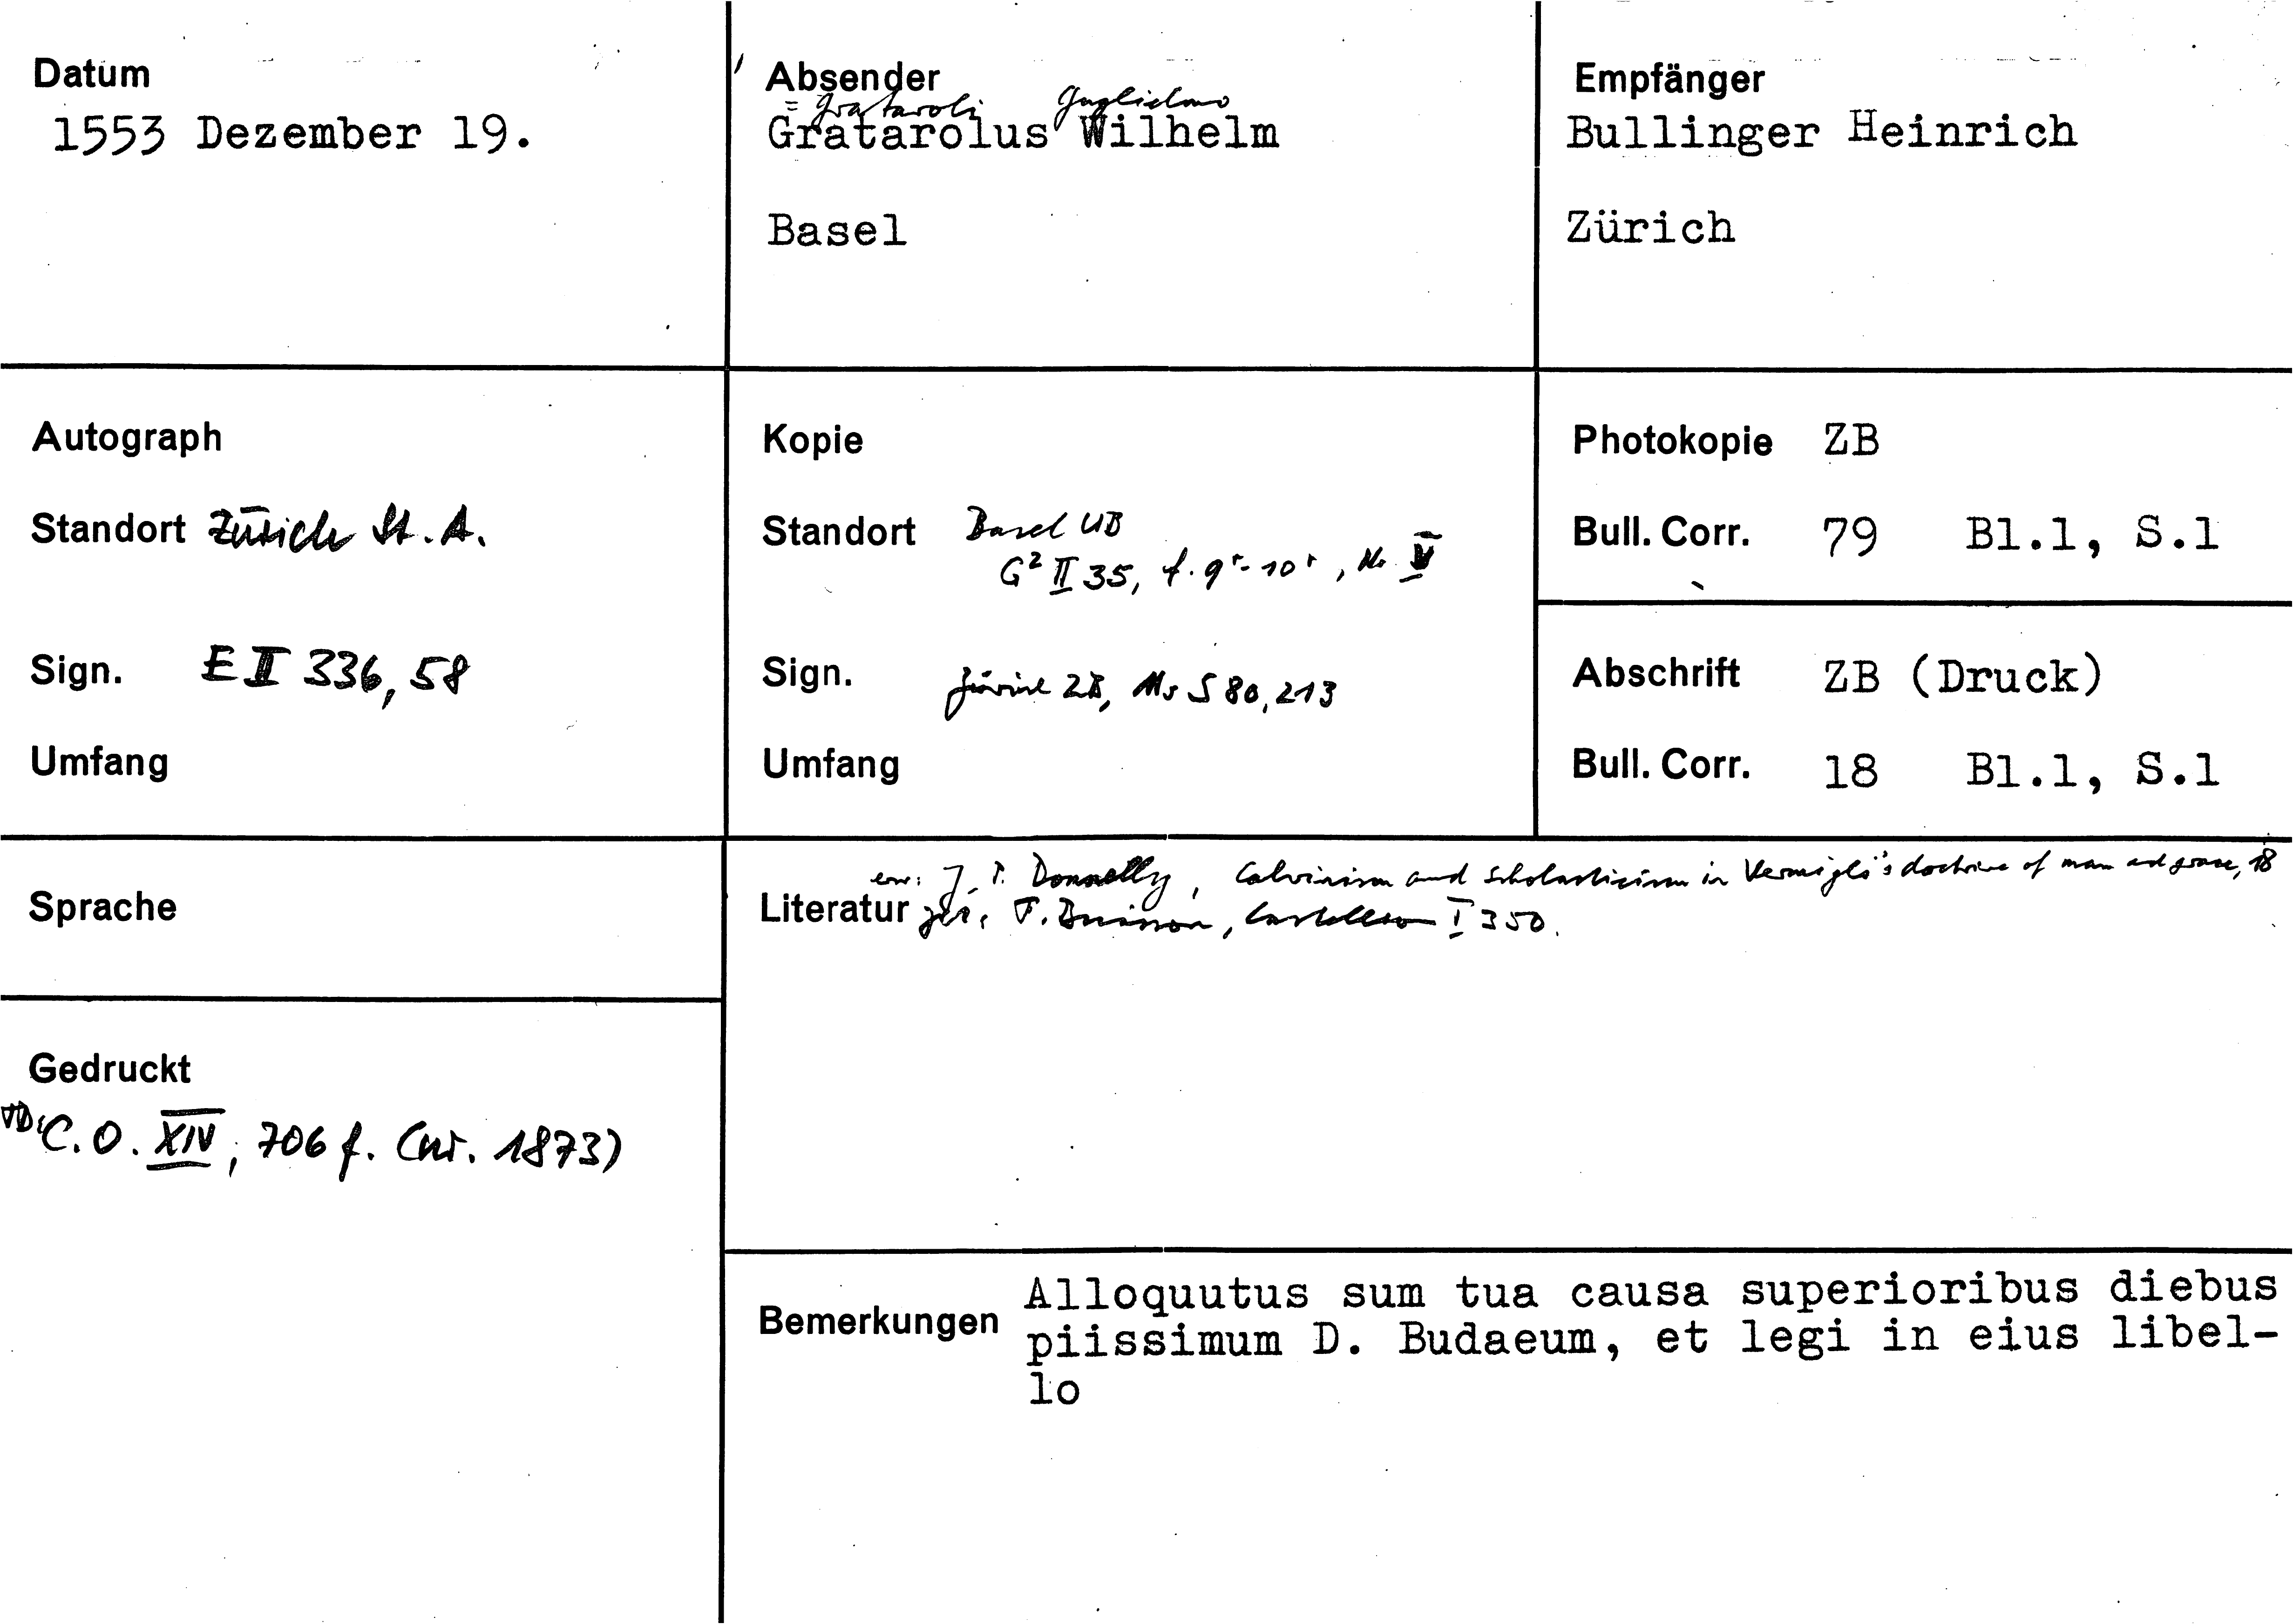 Datum
1553 Dezember 19.
Absender
= Grataroli Guglielmo
Gratarolus Wilhelm
Basel
Empfänger
Bullinger Heinrich
Zürich
Autograph
Standort Zürich St. A.
Sign. E II 336, 58
Umfang
Kopie
Standort Basel UB
G² II 35, f. 9r-10r, Nr. V
Sign. Zürich ZB, Ms S 80, 213
Umfang
Photokopie ZB
Bull. Corr. 79 Bl.1, S.1
Abschrift ZB (Druck)
Bull. Corr. 18 Bl.1, S.1
Sprache
erw: J. P. Donnelly, Calvinism and Scholasticism in Vermigli's doctrine of man and grace, 18
Literatur F. Buisson, Castellion I 350.
Gedruckt
C. O. XIV, 706 f. (nr. 1873)
Bemerkungen
Alloquutus sum tua causa superioribus diebus
piissimum D. Budaeum, et legi in eius libel-
lo